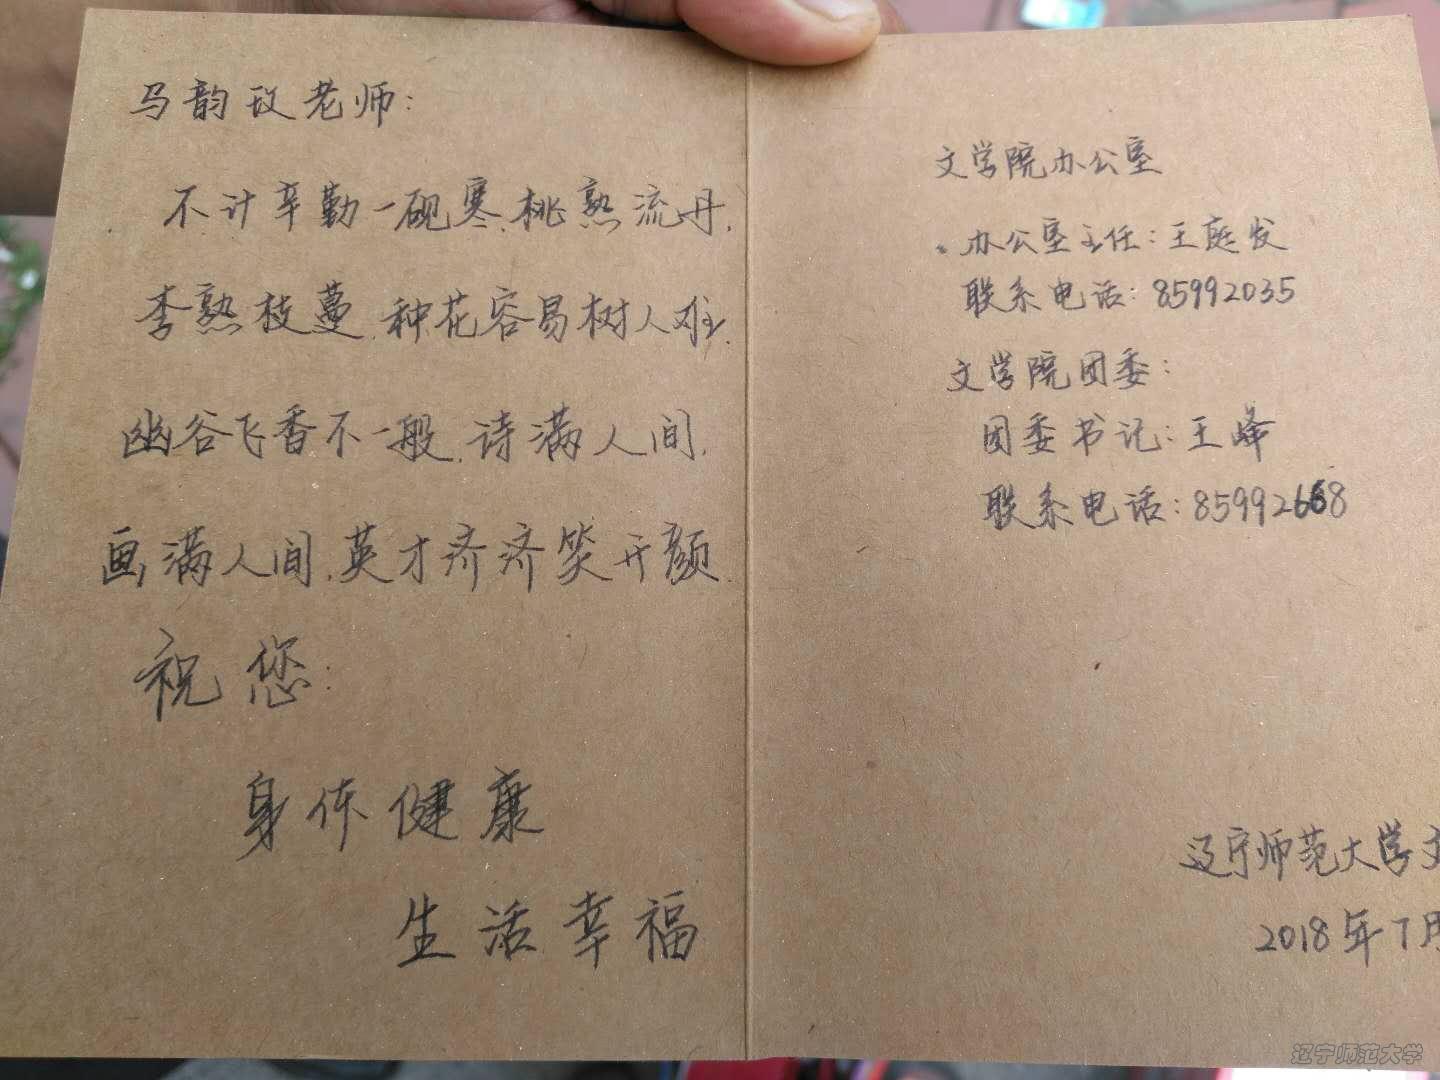 马韵玫老师：
不计辛勤一砚寒，桃熟流丹，
李熟枝蔓，种花容易树人难，
幽谷飞香不一般，诗满人间，
画满人间，英才济济笑开颜。
祝您：
身体健康
生活幸福
文学院办公室
办公室主任：王庭发
联系电话：85992035
文学院团委：
团委书记：王峰
联系电话：85992668
辽宁师范大学文
2018年7月
辽宁师范大学